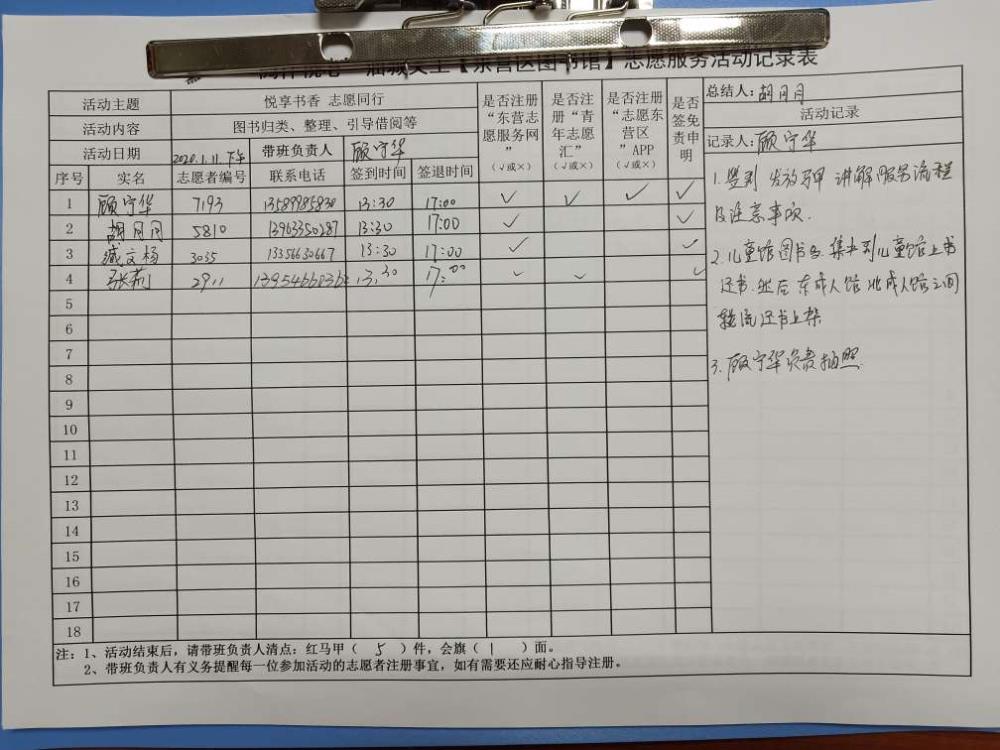 油城义工【东营区图书馆】志愿服务活动记录表
活动主题 悦享书香 志愿同行
活动内容 图书归类、整理、引导借阅等
活动日期 2020.1.11.下午 带班负责人 顾守华
是否注册“东营志愿服务网” (√或×)
是否注册“青年志愿汇” (√或×)
是否注册“志愿东营区”APP (√或×)
是否签免责申明
总结人:胡月月
活动记录
记录人:顾守华
序号 实名 志愿者编号 联系电话 签到时间 签退时间
1 顾守华 7193 13589985830 13:30 17:00 √ √ √ √
2 胡月月 5810 13963350287 13:30 17:00 √ √
3 臧文杨 3035 13356630667 13:30 17:00 √ √
4 张莉 2911 13:30 17:00 √ √ √
5
6
7
8
9
10
11
12
13
14
15
16
17
18
1.签到 发放马甲 讲解服务流程
及注意事项.
2.儿童馆图书多 集中到儿童馆上书
还书.然后 东成人馆 北成人馆之间
轮流还书上架
3.顾守华负责拍照.
注:1、活动结束后,请带班负责人清点:红马甲( 5 )件,会旗( 1 )面。
2、带班负责人有义务提醒每一位参加活动的志愿者注册事宜,如有需要还应耐心指导注册。